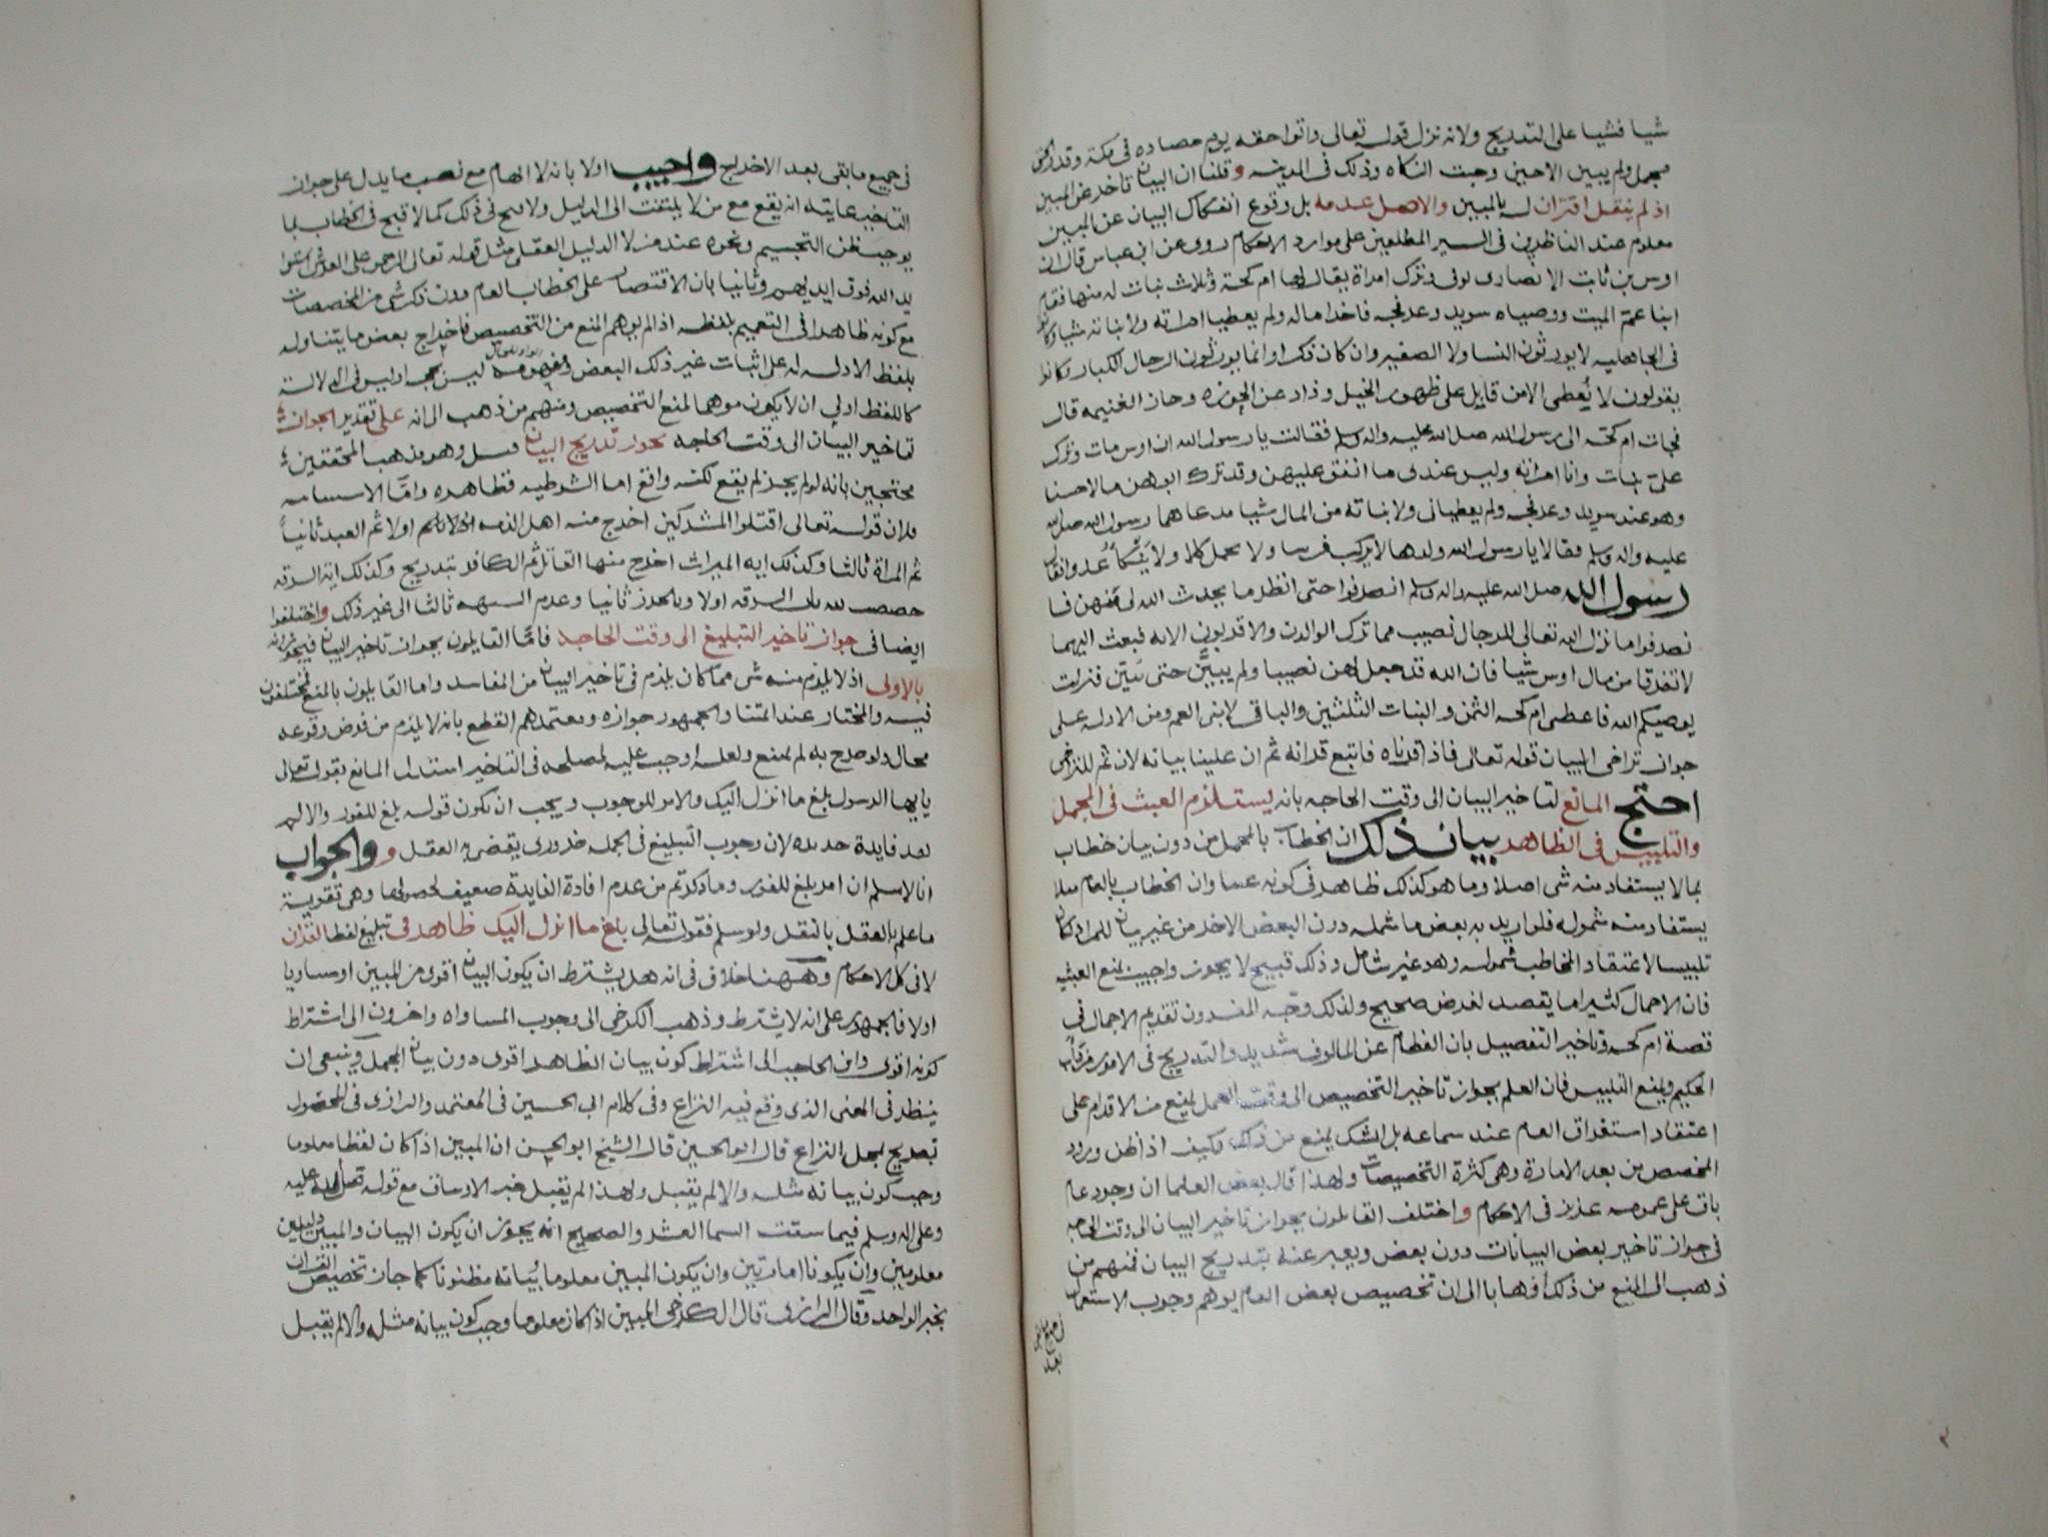 شيا فشيا على التدريج ولانه نزل قوله تعالى واتوا حقه يوم حصاده في مكة وقد
مجمل ولم يبين الا حين وجبت الزكاه وذلك في المدينه وقلنا ان البيان تاخر عن المبين
اذ لم ينقل اقتران له بالمبين والاصل عدمه بل وقوع انفكاك البيان عن المبين
معلوم عند الناظرين في السير المطلعين على موارد الاحكام روى عن ابن عباس قال ان
اوس بن ثابت الانصارى توفى وترك امراة يقال لها ام كحة وثلاث بنات له منها فقام
ابنا عم الميت ووصياه سويد وعرفجه فاخذا ماله ولم يعطيا امراته ولا بناته شيا وكان
في الجاهليه لا يورثون النسا ولا الصغير وان كان ذكرا وانما يورثون الرجال الكبار وكانوا
يقولون لا يُعطى الا من قاتل على ظهور الخيل وذاد عن الحوزه وحاز الغنيمه قال
فجات ام كحه الى رسول الله صلى الله عليه واله وسلم فقالت يا رسول الله ان اوس مات وترك
علىّ بنات وانا امراته وليس عندى ما انفق عليهن وقد ترك ابوهن مالا حسنا
وهو عند سويد وعرفجه ولم يعطيانى ولا بناته من المال شيا فدعاهما رسول الله صلى الله
عليه واله وسلم فقالا يا رسول الله ولدها لا يركب فرسا ولا يحمل كلا ولا يَنْكأُ عدوا فقال
رسول الله صلى الله عليه واله وسلم انصرفوا حتى انظر ما يحدث الله لى فيهن فا
نصرفوا فانزل الله تعالى للرجال نصيب مما ترك الوالدن والاقربون الايه فبعث اليهما
لا تفرقا من مال اوس شيا فان الله قد جعل لهن نصيبا ولم يبين حتى تبين فنزلت
يوصيكم الله فاعطى ام كحه الثمن والبنات الثلثين والباقى لابنى العم ومن الادله على
جواز تراخى البيان قوله تعالى فاذا قرناه فاتبع قرانه ثم ان علينا بيانه لان ثم للتراخى
احتج المانع لتاخير البيان الى وقت الحاجه بانه يستلزم العبث في المجمل
والتلبيس في الظاهر بيان ذلك ان الخطاب بالمجمل من دون بيان خطاب
بما لا يستفاد منه شى اصلا وما هو كذلك ظاهر في كونه عبثا وان الخطاب بالعام مثلا
يستفاد منه شموله فلو اريد به بعض ما شمله دون البعض الاخر من غير بيان للمراد كان
تلبيسا لاعتقاد المخاطب شموله وهو غير شامل وذلك قبيح لا يجوز واجيب بمنع العبثيه
فان الاجمال كثيرا ما يقصد لغرض صحيح ولذلك وجّه المفسرون تقديم الاجمال في
قصة ام كحه وتاخير التفصيل بان الفطام عن المالوف شديد والتدريج في الامور من داب
الحكيم ويمنع التلبيس فان العلم بجواز تاخير التخصيص الى وقت العمل يمنع من الاقدام على
اعتقاد استغراق العام عند سماعه بل الشك يمنع من ذلك فكيف اذا ظن ورود
المخصص من بعد الامارة وهي كثرة التخصيصات ولهذا قال بعض العلما ان وجود عام
باق على عمومه عزيز في الاحكام واختلف القائلون بجواز تاخير البيان الى وقت الحاجه
في جواز تاخير بعض البيانات دون بعض ويعبر عنه بتدريج البيان فمنهم من
ذهب الى المنع من ذلك ذهابا الى ان تخصيص بعض العام يوهم وجوب الاستعمال
في جميع ما بقى بعد الاخراج واجيب اولا بانه لا ايهام مع نصب ما يدل على جواز
التاخير غايته انه يقع مع من لا يلتفت الى الدليل ولا قبح في ذلك كما لا قبح في الخطاب بما
يوجب ظن التجسيم ونحوه عند من لا الدليل العقلى مثل قوله تعالى الرحمن على العرش استوى
يد الله فوق ايديهم وثانيا بان الاقتصار على الخطاب العام دون ذكر شى من المخصصات
مع كونه ظاهرا في التعميم بلفظه اذا لم يوهم المنع من التخصيص فاخراج بعض ما يتناوله
بلفظ لا دلاله له على اثبات غير ذلك البعض ومفهومه ليس بحجه او ليس في الدلالة
كاللفظ اولى ان لا يكون موهما لمنع التخصيص ومنهم من ذهب الى انه على تقدير الجواز في
تاخير البيان الى وقت الحاجه يجوز تدريج البيان قيل وهو مذهب المحققين
محتجين بانه لو لم يجز لم يقع لكنه واقع اما الشرطيه فظاهره وامّا الاستثنائيه
فلان قوله تعالى اقتلوا المشركين اخرج منه اهل الذمه اولا ثم العبد ثانياً
ثم المراة ثالثا وكذلك ايه الميراث اخرج منها القاتل ثم الكافر بتدريج وكذلك ايه السرقه
خصصت السرقه اولا وبالحرز ثانيا وعدم الشبهه ثالثا الى غير ذلك واختلفوا
ايضا في جواز تاخير التبليغ الى وقت الحاجه فامّا القايلون بجواز تاخير البيان فيجوزونه
بالاولى اذ لا يلزم منه شى مما كان يلزم في تاخير البيان من المفاسد واما القايلون بالمنع فمختلفون
فيه والمختار عند ائمتنا والجمهور جوازه ومعتمدهم القطع بانه لا يلزم من فرض وقوعه
محال ولو صرح به لم يمنع ولعله اوجب عليه لمصلحه في التاخير استدل المانع بقوله تعالى
يايها الرسول بلغ ما انزل اليك والامر للوجوب ويجب ان يكون قوله بلغ للفور والا لم
يفد فايدة جديده لان وجوب التبليغ في الجمله ضرورى يقضى به العقل والجواب
انا لا نسلم ان امر بلغ للفور وما ذكرتم من عدم افادة الفايدة ضعيف لحصولها وهى تقوية
ما علم بالعقل بالنقل ولو سلم فقوله تعالى بلغ ما انزل اليك ظاهر في تبليغ لفظ القران
لا في كل الاحكام وههنا خلاف في انه هل يشترط ان يكون البيان اقوى من المبين او مساويا
اولا فالجمهور على انه لا يشترط وذهب الكرخى الى وجوب المساواه واخرون الى اشتراط
كونه اقوى وابن الحاجب الى اشتراط كون بيان الظاهر اقوى دون بيان المجمل وينبغى ان
ينظر في المعنى الذى وقع فيه النزاع وفي كلام ابى الحسين في المعتمد والرازى في المحصول
تصريح بمحل النزاع قال ابو الحسين قال الشيخ ابو الحسن ان المبين اذا كان لفظا معلوما
وجب كون بيانه مثله والا لم يقبل ولهذا لم يقبل خبر الاوساق مع قوله صلى الله عليه
وعلى اله وسلم فيما سقت السما العشر والصحيح انه يجوز ان يكون البيان والمبين دليلين
معلومين وان يكونا امارتين وان يكون المبين معلوما بيانه مظنونا كما جاز تخصيص القران
بخبر الواحد وقال الرازى قال الكرخى المبين اذا كان معلوما وجب كون بيانه مثله والا لم يقبل